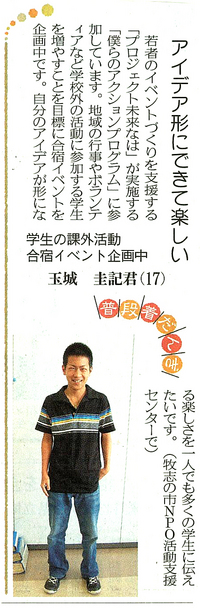 アイデア形にできて楽しい
若者のイベントづくりを支援する
「プロジェクト未来なは」が実施する
「僕らのアクションプログラム」に参
加しています。地域の行事やボランテ
ィアなど学校外の活動に参加する学生
を増やすことを目標に合宿イベントを
企画中です。自分のアイデアが形にな
学生の課外活動
合宿イベント企画中
玉城 圭記君(17)
普段着だんみ
る楽しさを一人でも多くの学生に伝え
たいです。(牧志の市NPO活動支援
センターで)